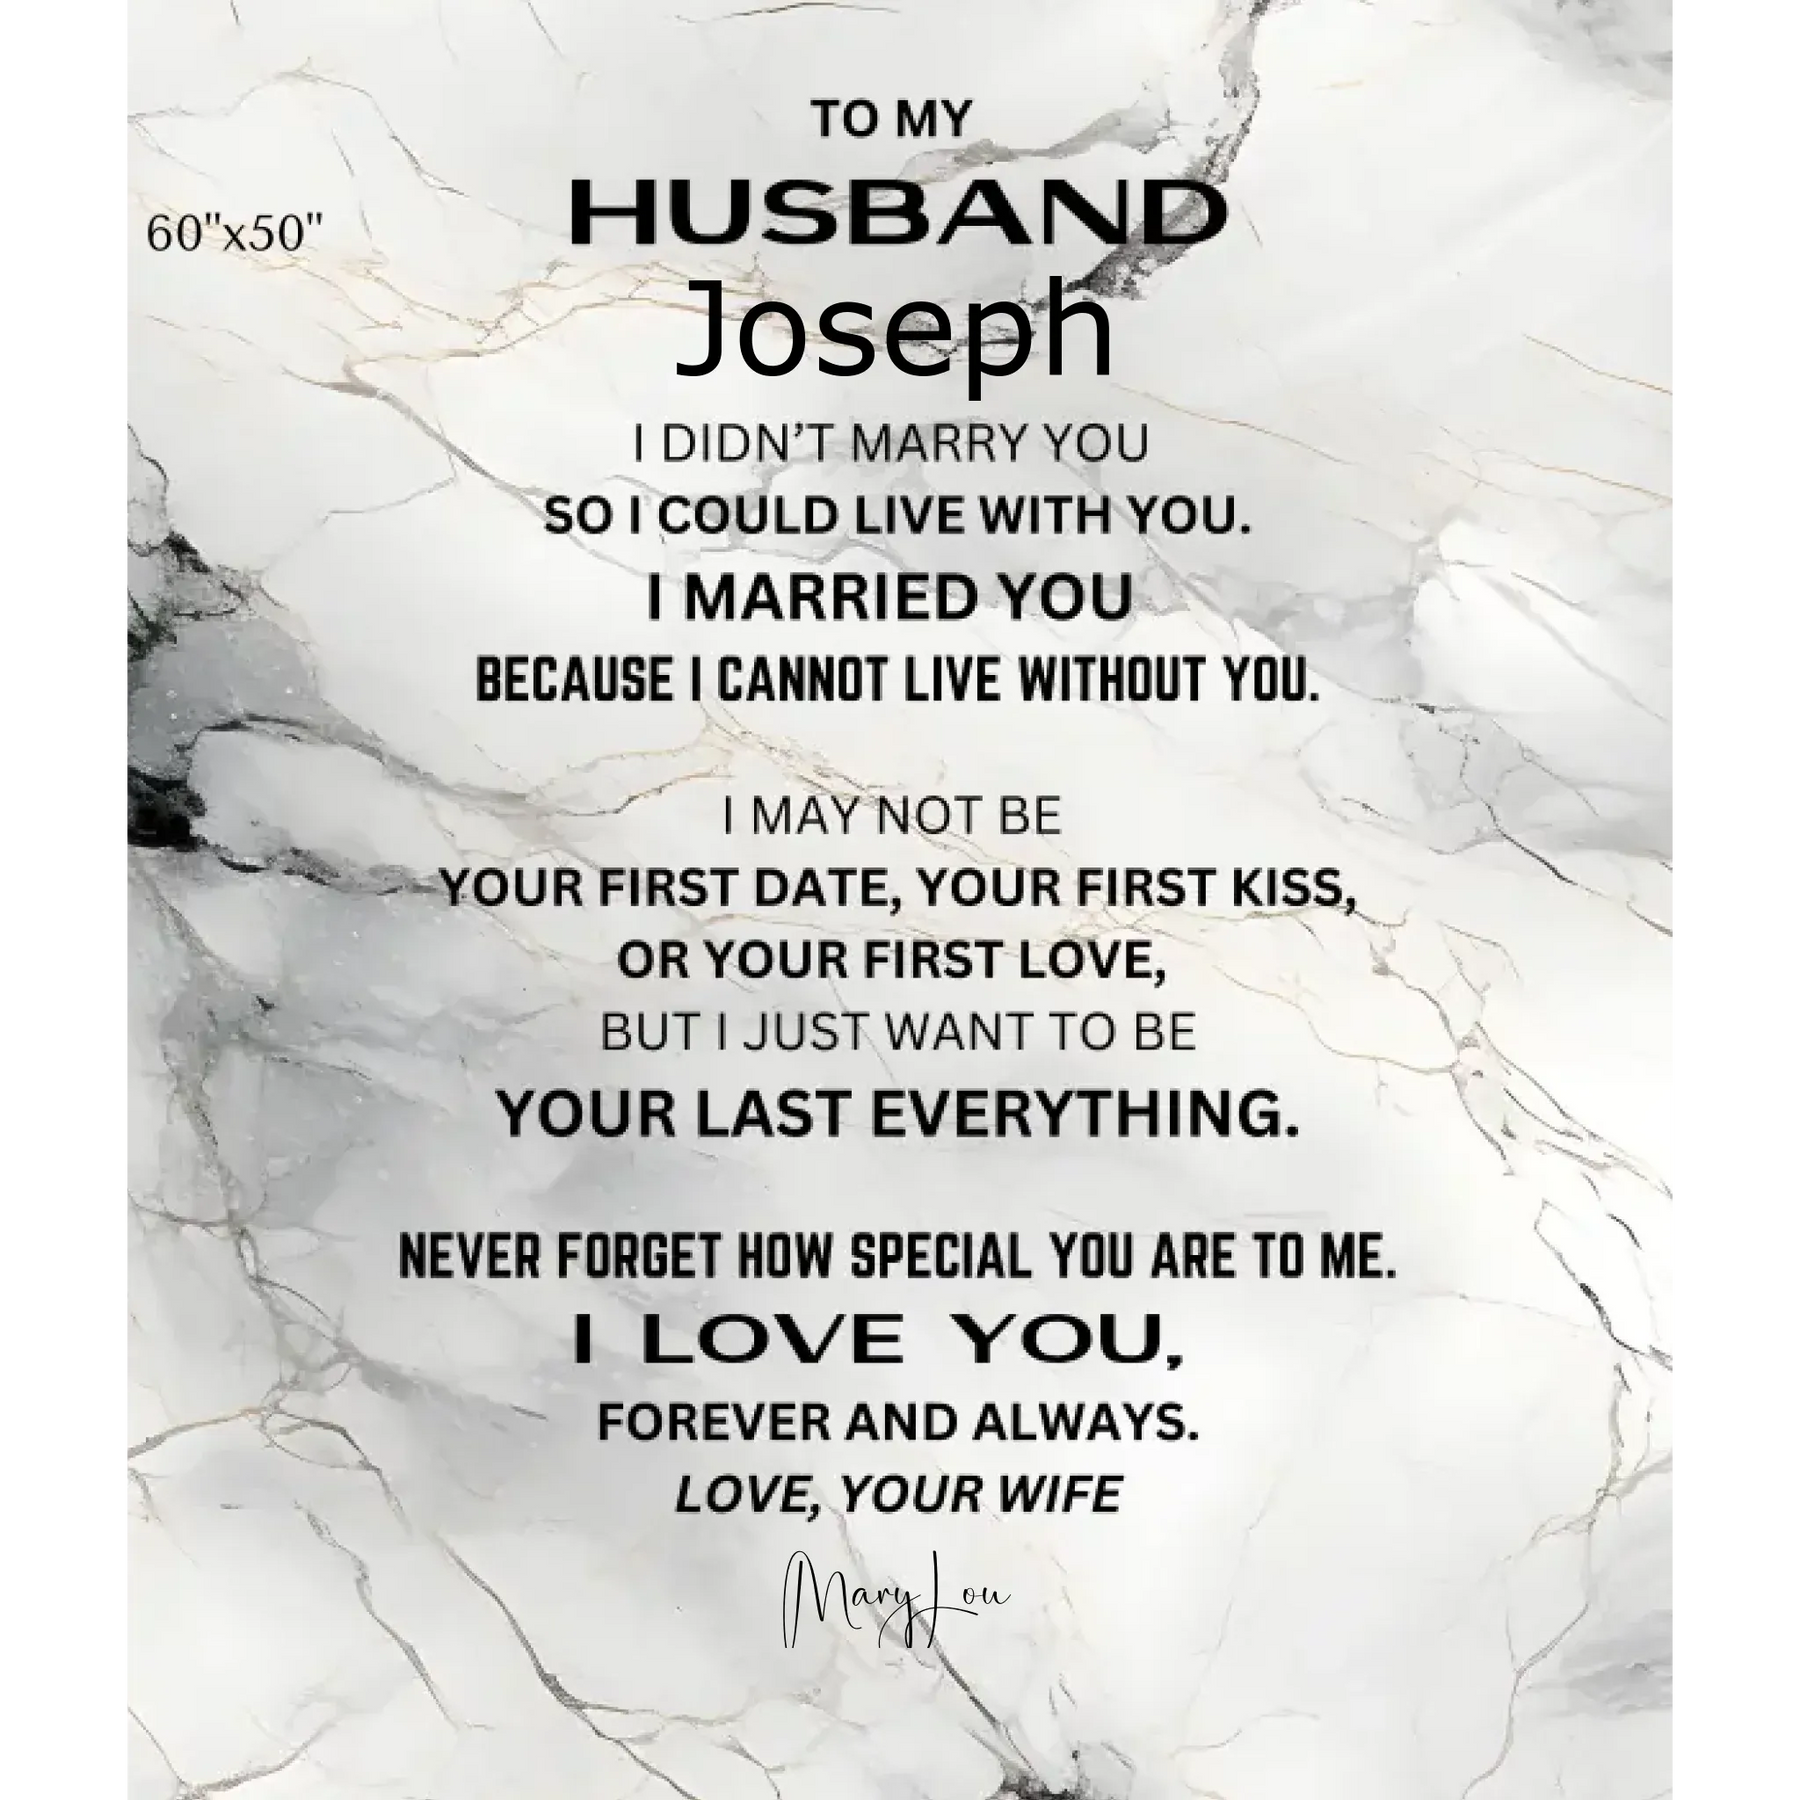 TO MY
HUSBAND
60"x50"
Joseph
I DIDN’T MARRY YOU
SO I COULD LIVE WITH YOU.
I MARRIED YOU
BECAUSE I CANNOT LIVE WITHOUT YOU.
I MAY NOT BE
YOUR FIRST DATE, YOUR FIRST KISS,
OR YOUR FIRST LOVE,
BUT I JUST WANT TO BE
YOUR LAST EVERYTHING.
NEVER FORGET HOW SPECIAL YOU ARE TO ME.
I LOVE YOU,
FOREVER AND ALWAYS.
LOVE, YOUR WIFE
Mary Lou